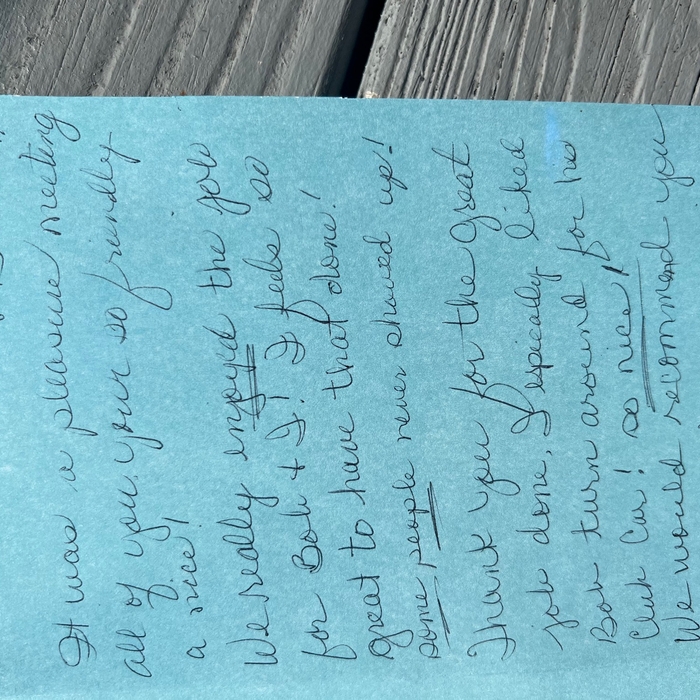 It was a pleasure meeting
all of you. your so friendly
a nice!
We really enjoyed the job
for Bob + I! I feels so
great to have that done!
some people never showed up!
Thank you for the great
job done, I especially liked
Bob turn around for his
Club Car! so nice!
We would recommend you